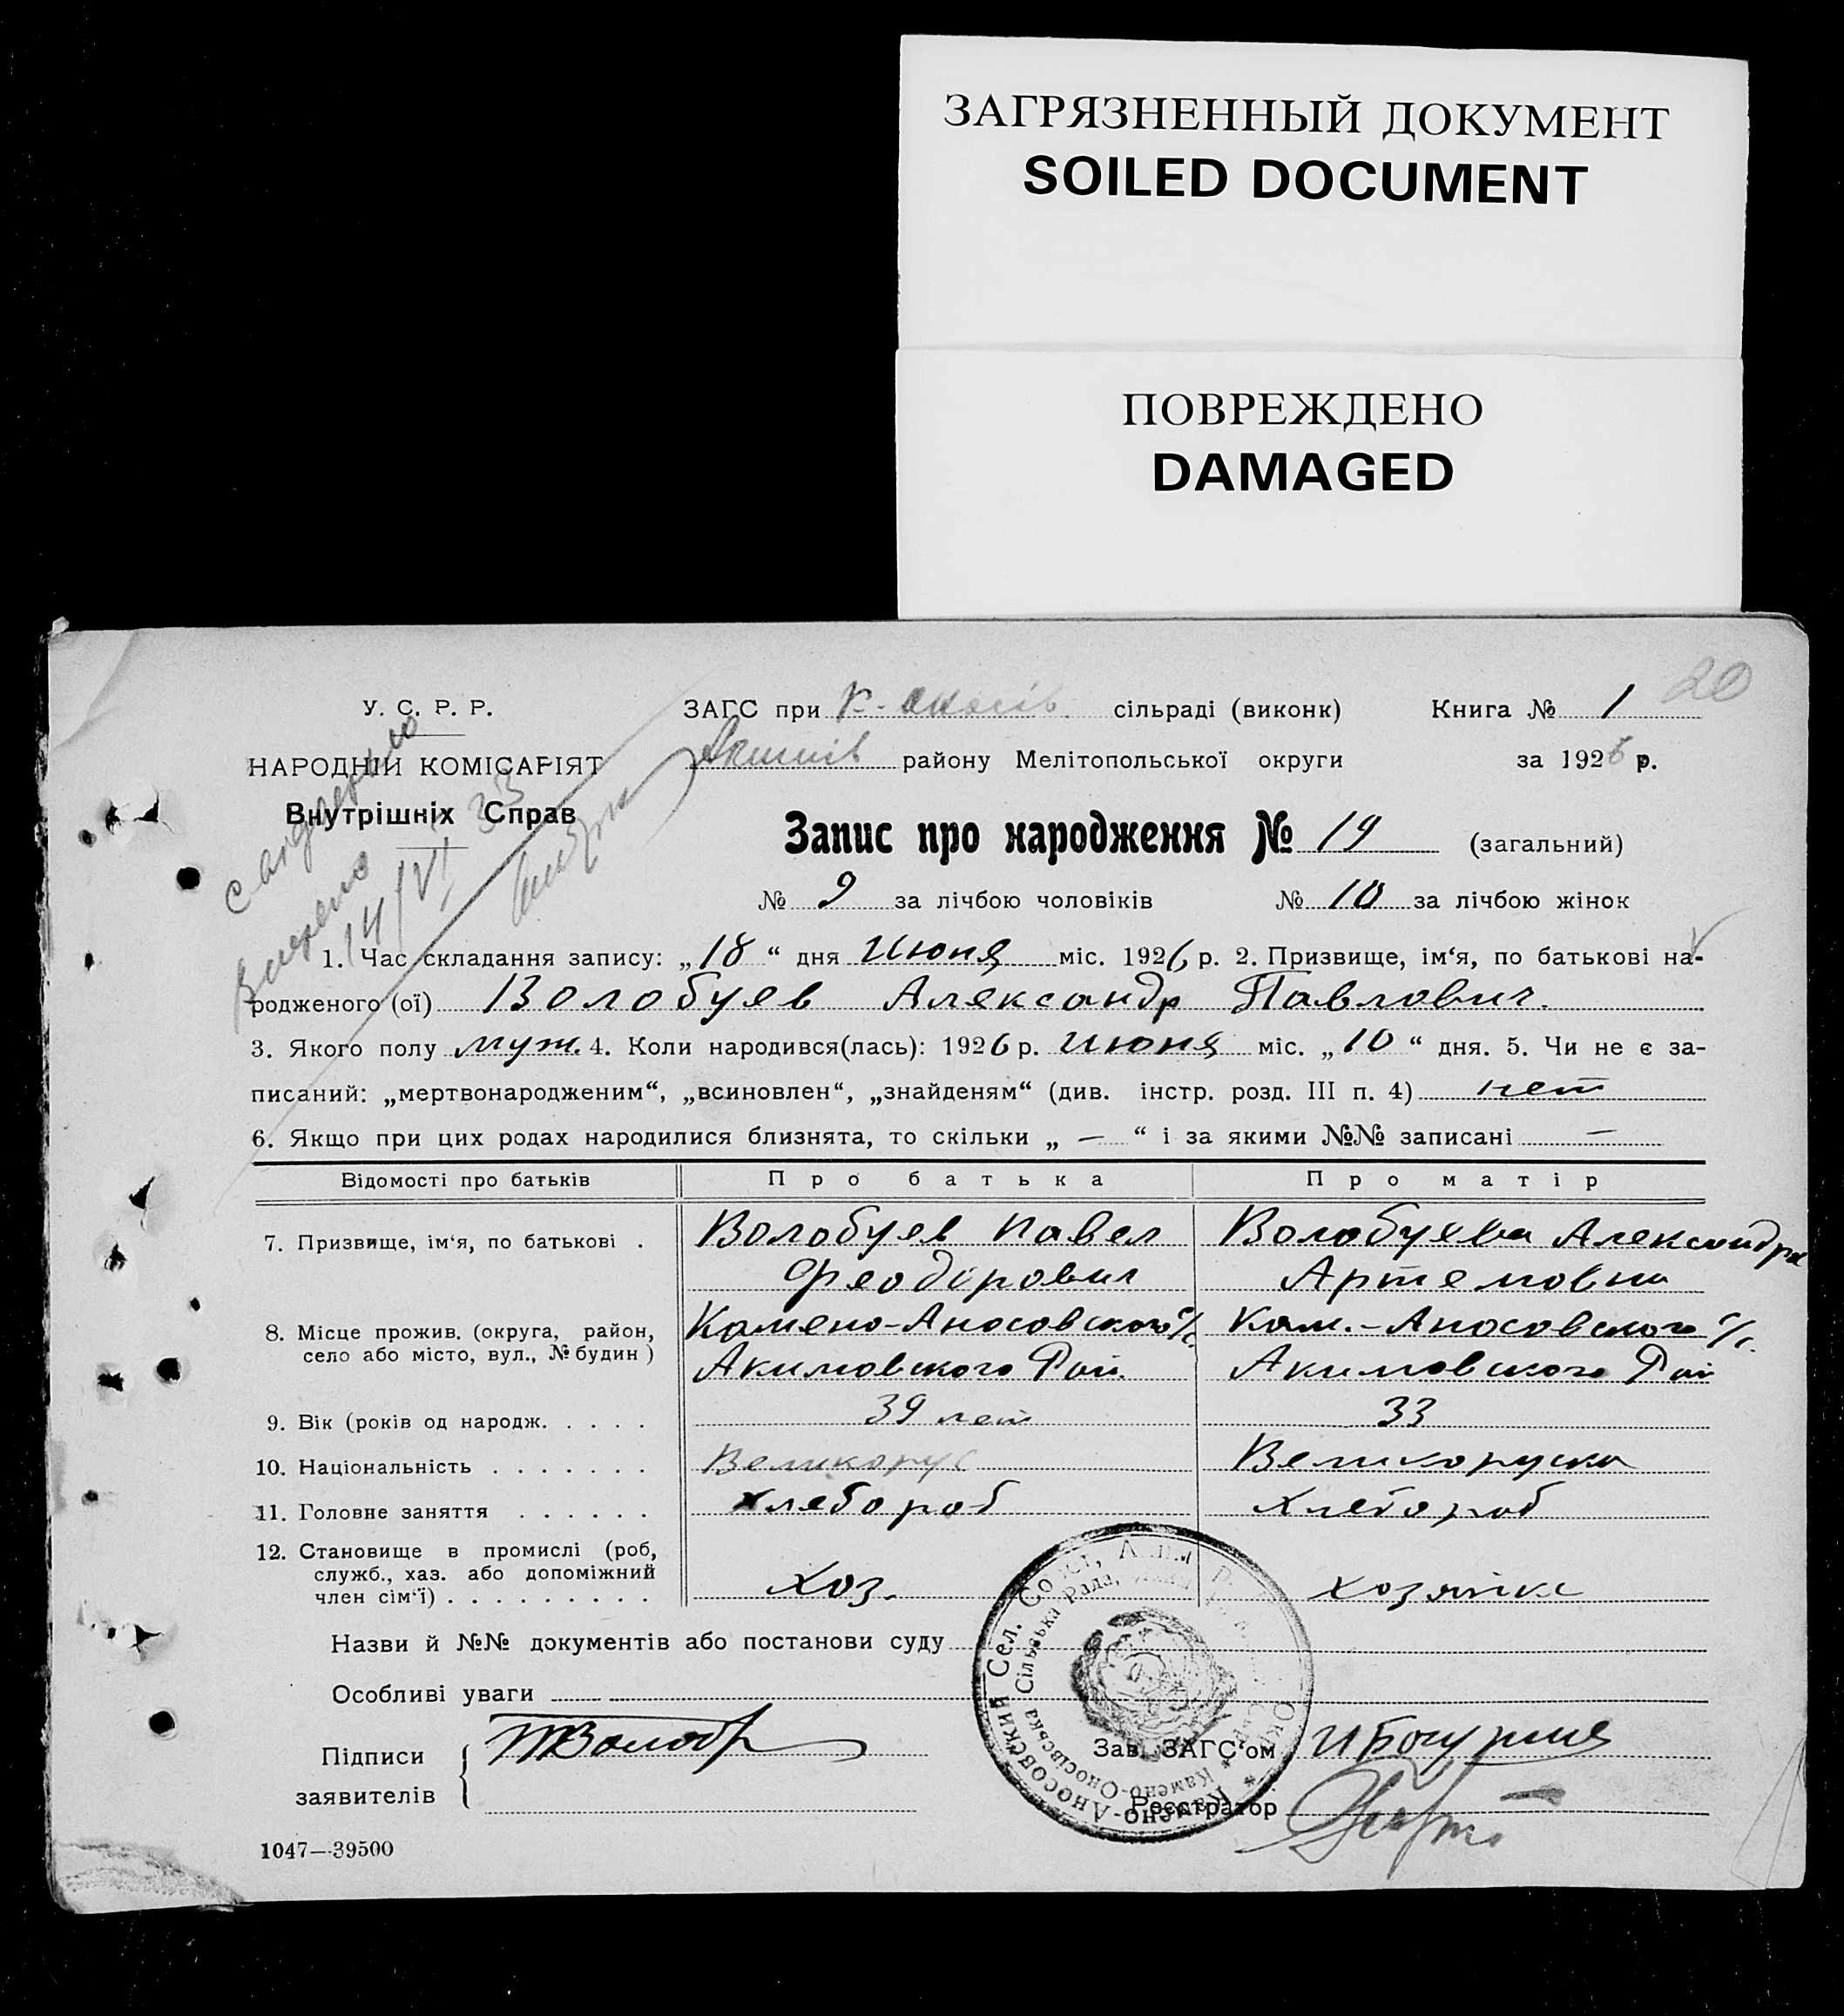 ЗАГРЯЗНЕННЫЙ ДОКУМЕНТ
SOILED DOCUMENT
ПОВРЕЖДЕНО
DAMAGED
20
У. С. Р. Р.
НАРОДНІЙ КОМІСАРІЯТ
Внутрішніх Справ
14/VI 33
ЗАГС при сільраді (виконк) Книга № 1
Акимів району Мелітопольської округи за 1926 р.
Запис про народження № 19 (загальний)
№ 9 за лічбою чоловіків № 10 за лічбою жінок
1. Час складання запису: „18“ дня Июня міс. 1926 р. 2. Призвище, ім‘я, по батькові на-
родженого (ої) Волобуев Александр Павлович.
3. Якого полу муж. 4. Коли народився(лась): 1926 р. Июня міс. „10“ дня. 5. Чи не є за-
писаний: „мертвонародженим“, „всиновлен“, „знайденям“ (див. інстр. розд. III п. 4) нет
6. Якщо при цих родах народилися близнята, то скільки „ — “ і за якими №№ записані —
Відомості про батьків Про батька Про матір
7. Призвище, ім‘я, по батькові . Волобуев Павел Волобуева Александра
Феодорович Артемовна
8. Місце прожив. (округа, район, Камено-Аносовского с/с. Кам.-Аносовского с/с.
село або місто, вул., № будин) Акимовского Рай. Акимовского Рай
9. Вік (років од народж. . . . . 39 лет 33
10. Національність . . . . . . . Великорус Великоруска
11. Головне заняття . . . . . . хлебороб хлебороб
12. Становище в промислі (роб,
служб., хаз. або допоміжний
член сім‘ї) . . . . . . . . . Хоз. хозяйка
Назви й №№ документів або постанови суду
Особливі уваги
Підписи
заявителів
Зав. ЗАГС‘ом
Реєстратор
Камено-Аносовский Сел. Совет, Аким
Камено-Оносівська Сільська Рада,
1047—39500